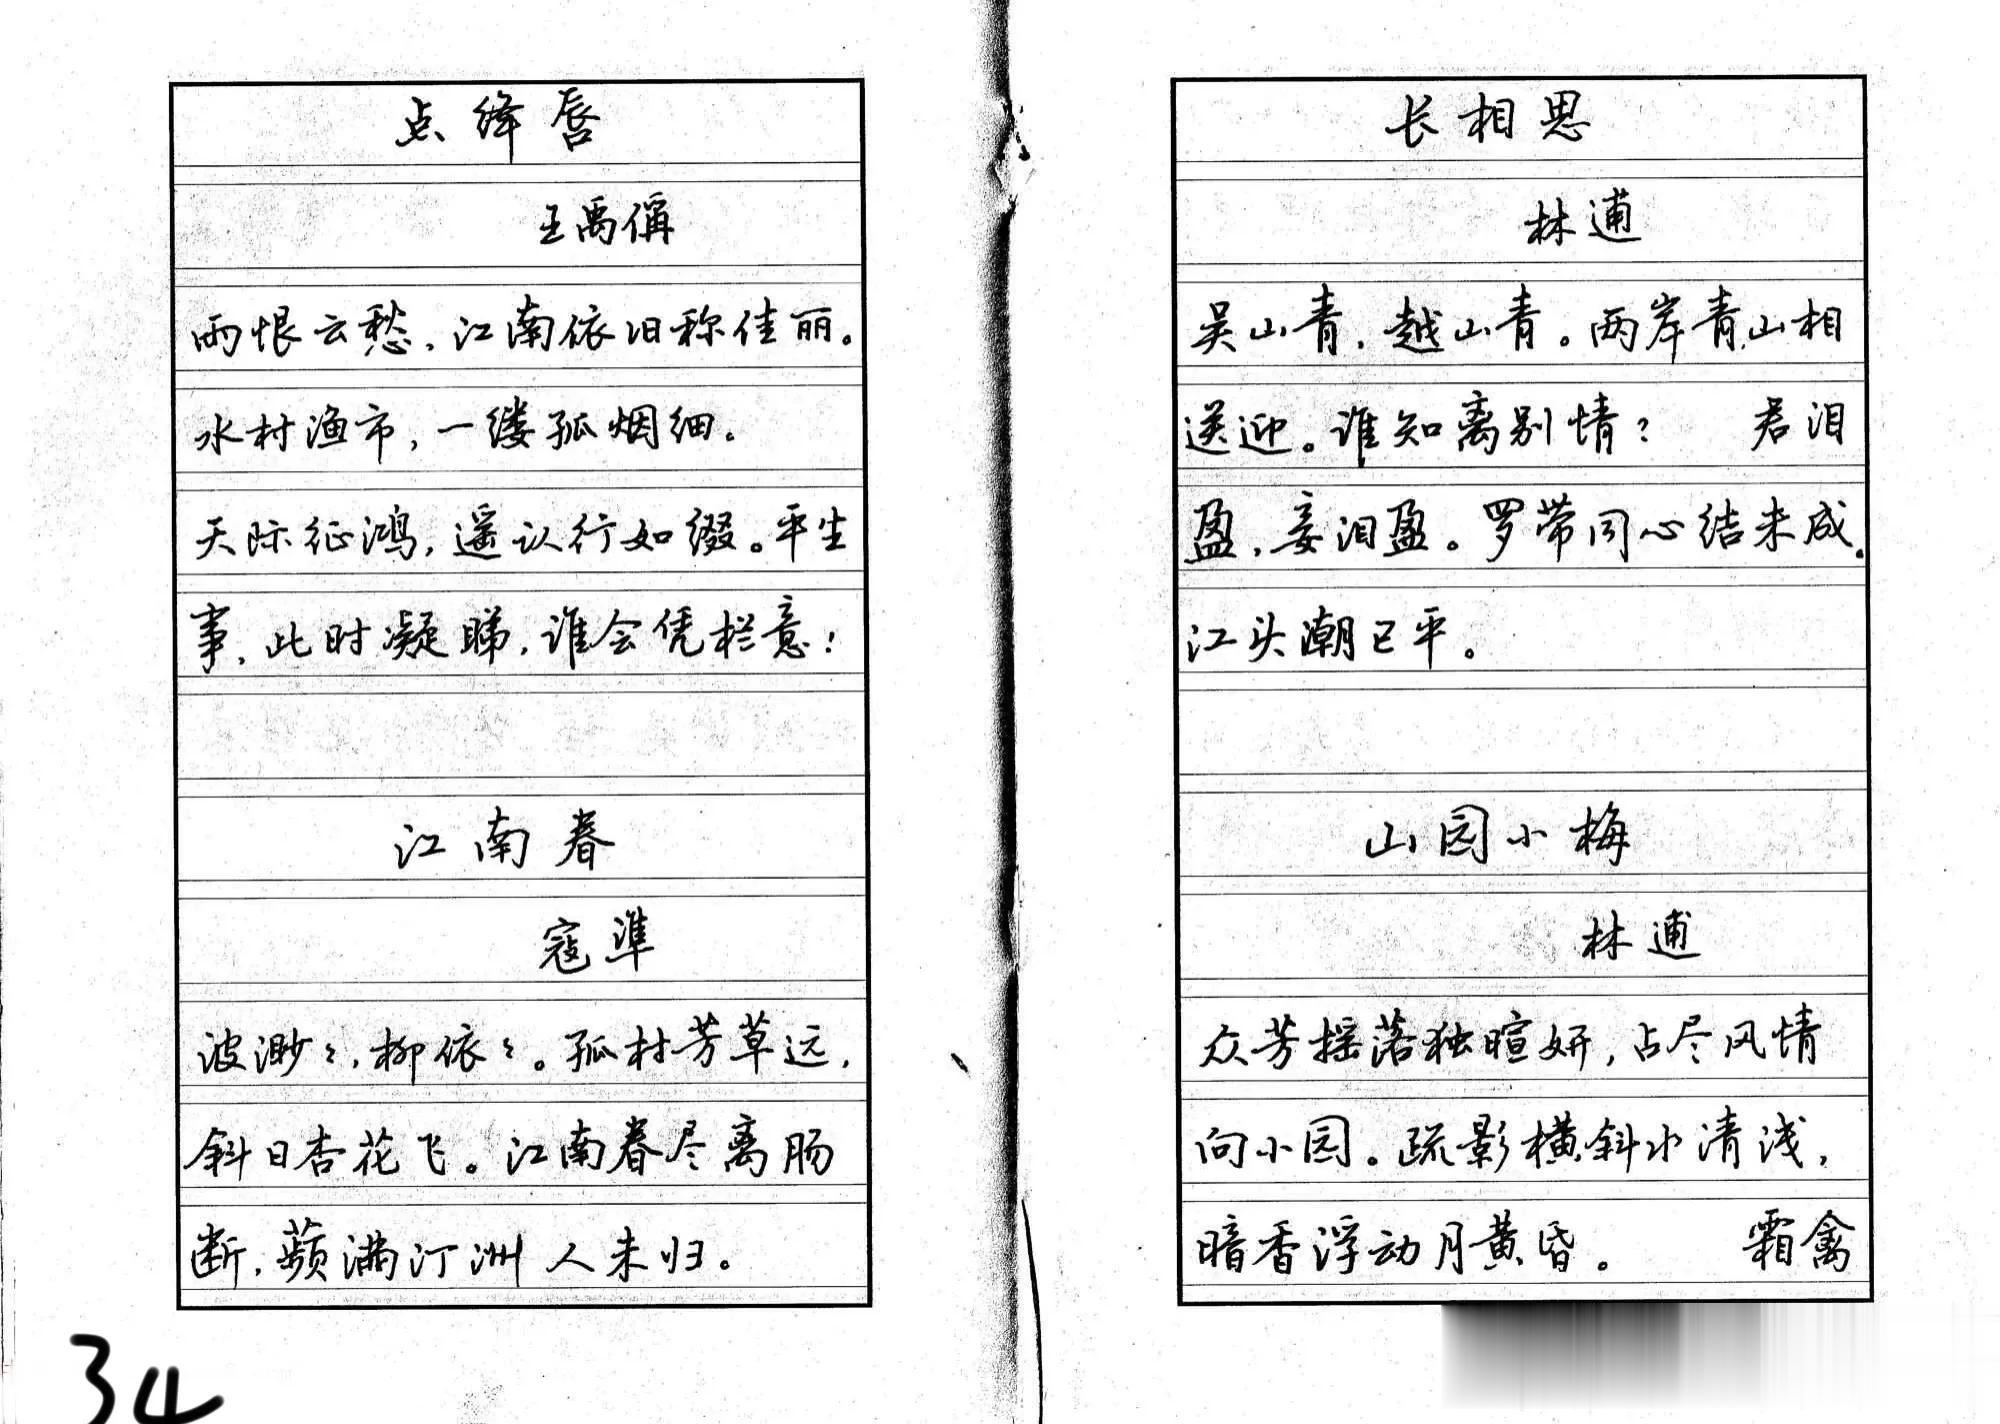 点绛唇
王禹偁
雨恨云愁，江南依旧称佳丽。
水村渔市，一缕孤烟细。
天际征鸿，遥认行如缀。平生
事，此时凝睇，谁会凭栏意！
江南春
寇準
波渺〻，柳依〻。孤村芳草远，
斜日杏花飞。江南春尽离肠
断，蘋满汀洲人未归。
34
长相思
林逋
吴山青，越山青。两岸青山相
送迎。谁知离别情？ 君泪
盈，妾泪盈。罗带同心结未成。
江头潮已平。
山园小梅
林逋
众芳摇落独暄妍，占尽风情
向小园。疏影横斜水清浅，
暗香浮动月黄昏。 霜禽